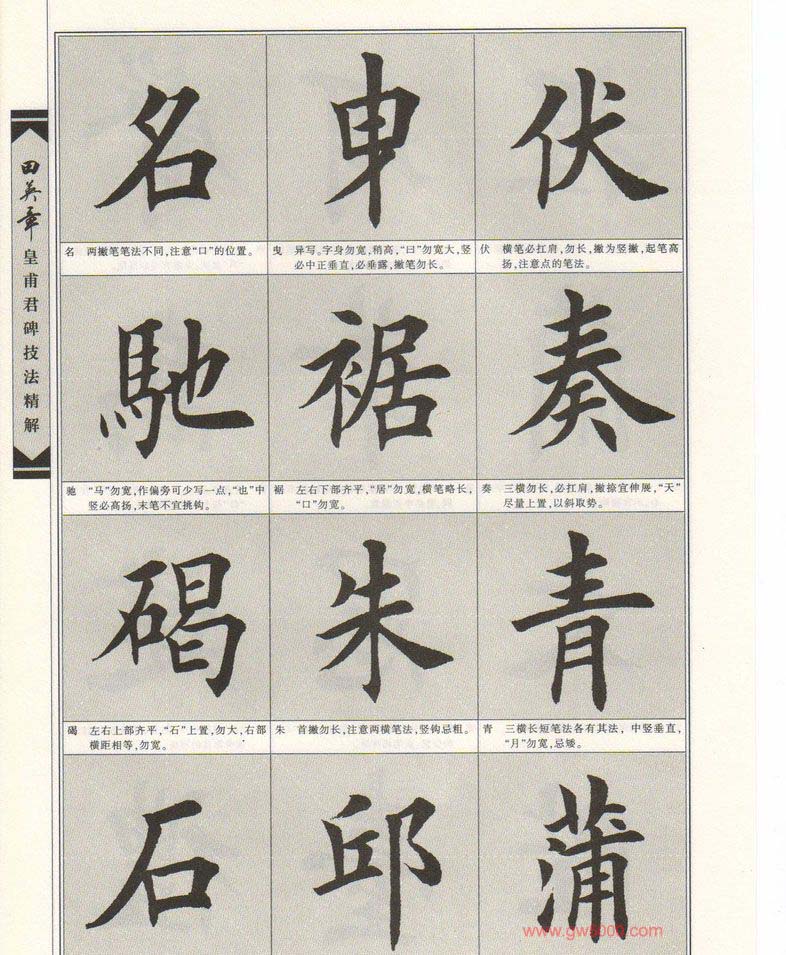 田英章
皇甫君碑技法精解
名
申
伏
名 两撇笔笔法不同,注意“口”的位置。
曳 异写。字身勿宽,稍高,“曰”勿宽大,竖
必中正垂直,必垂露,撇笔勿长。
伏 横笔必扛肩,勿长,撇为竖撇,起笔高
扬,注意点的笔法。
馳
裾
奏
驰 “马”勿宽,作偏旁可少写一点,“也”中
竖必高扬,末笔不宜挑钩。
裾 左右下部齐平,“居”勿宽,横笔略长,
“口”勿宽。
奏 三横勿长,必扛肩,撇捺宜伸展,“天”
尽量上置,以斜取势。
碣
朱
青
碣 左右上部齐平,“石”上置,勿大,右部
横距相等,勿宽。
朱 首撇勿长,注意两横笔法,竖钩忌粗。
青 三横长短笔法各有其法，中竖垂直,
“月”勿宽,忌矮。
石
邱
蒲
www.gw5000.com